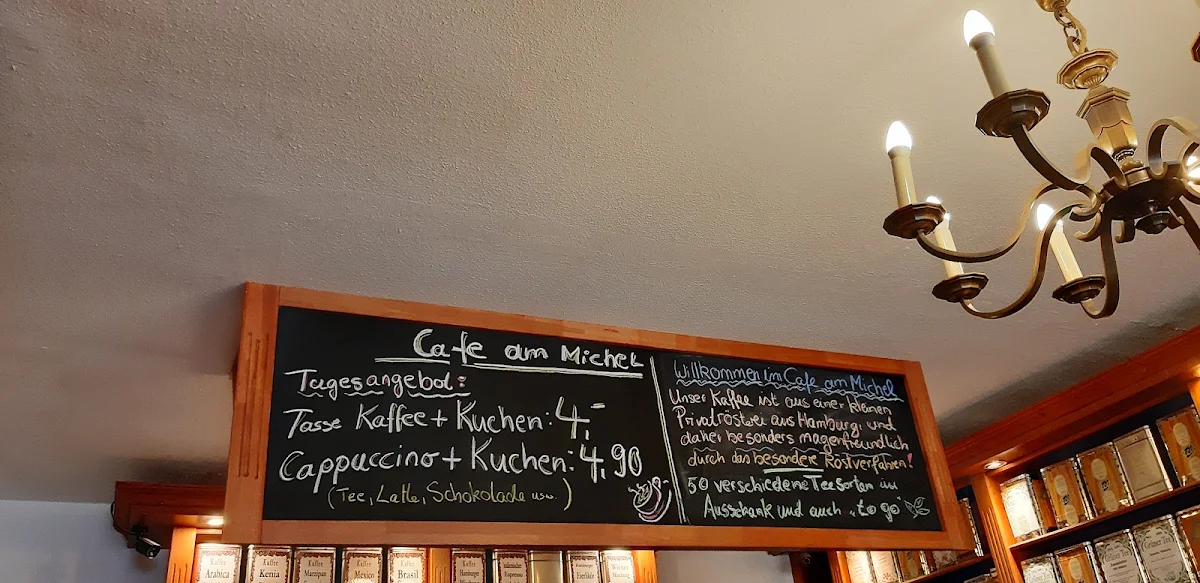 Cafe am Michel
Tagesangebot:
Tasse Kaffee + Kuchen: 4,-
Cappuccino + Kuchen: 4,90
(Tee, Latte, Schokolade usw.)
Willkommen im Cafe am Michel
Unser Kaffee ist aus einer kleinen
Privatrösterei aus Hamburg und
daher besonders magenfreundlich
durch das besondere Röstverfahren!
50 verschiedene Teesorten im
Ausschank und auch „to go"
Kaffee
Arabica
Kaffee
Kenia
Kaffee
Marzipan
Kaffee
Mexico
Kaffee
Brasil
Kaffee
Hamburger
Espresso
Eierlikör
Wiener
Grüner Tee